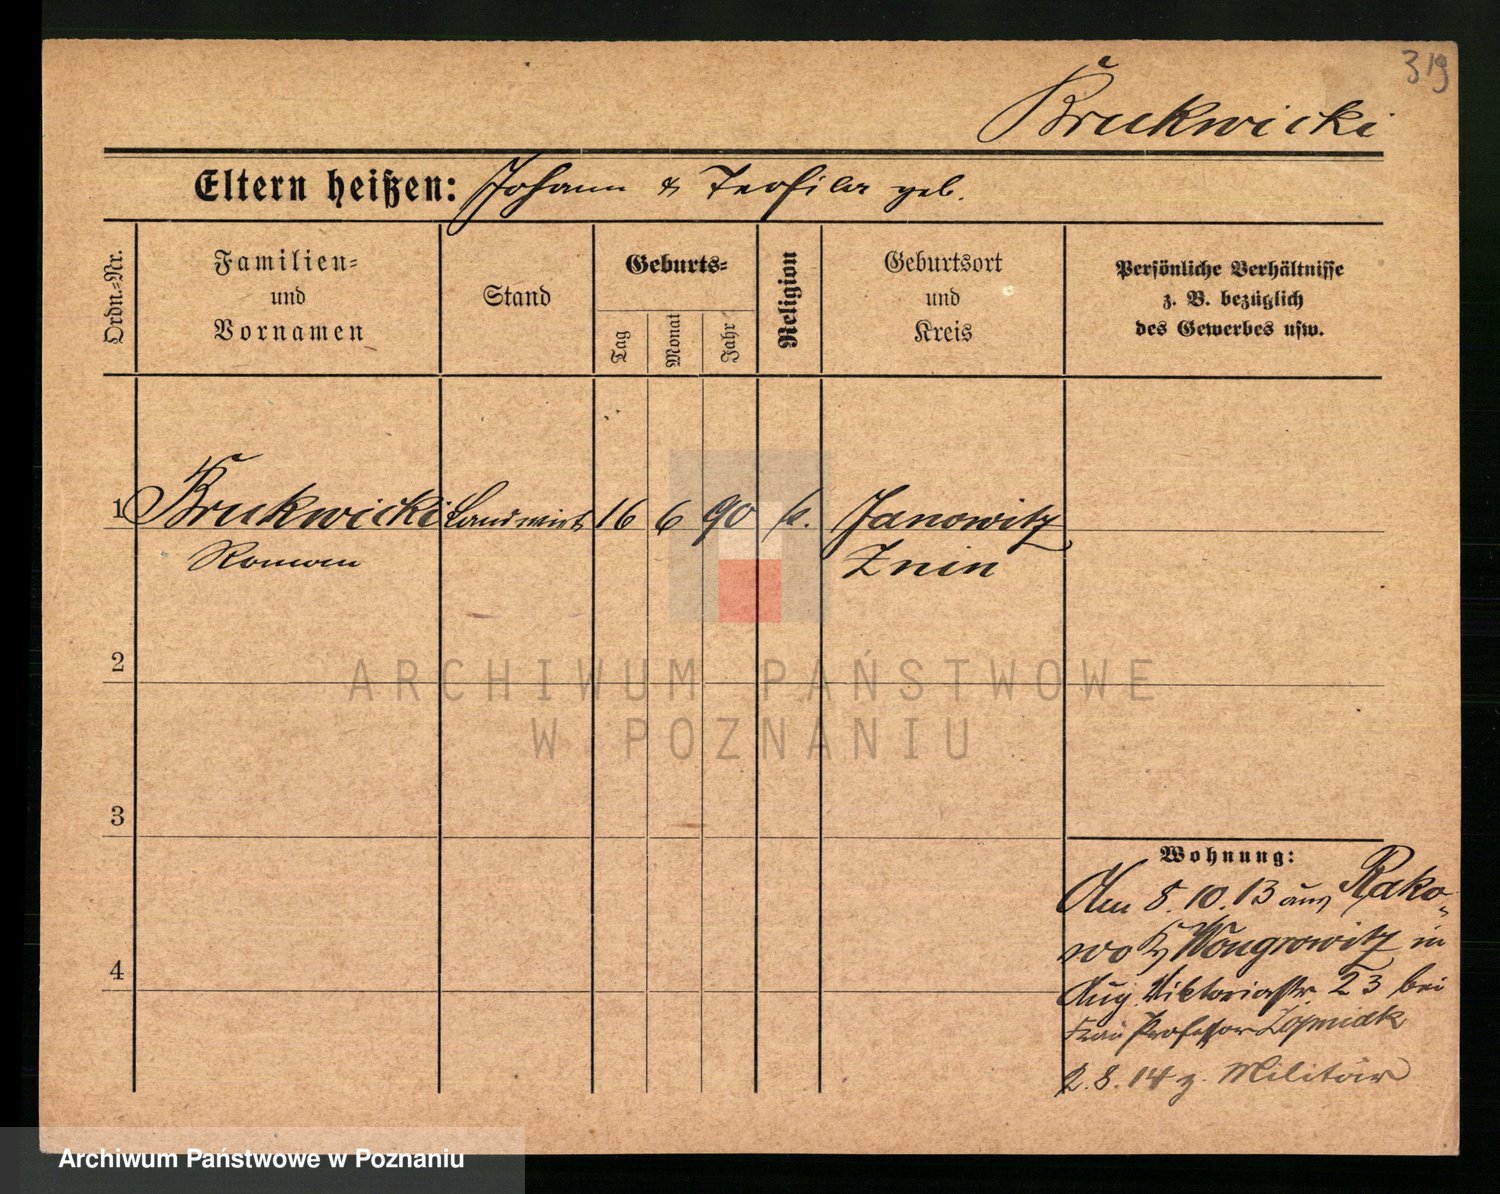 319
Brukwicki
Eltern heißen: Johann & Teofila geb.
Ordn.-Nr.
Familien-
und
Vornamen
Stand
Geburts-
Tag
Monat
Jahr
Religion
Geburtsort
und
Kreis
Persönliche Verhältnisse
z. B. bezüglich
des Gewerbes usw.
1 Brukwicki Landwirt 16 6 90 k. Janowitz
Roman Znin
2
ARCHIWUM PAŃSTWOWE
W POZNANIU
3
Wohnung:
Am 8. 10. 13 aus Rako-
4
wo Wongrowitz in
Aug. Viktoriastr. 23 bei
Frau Professor
2. 8. 14 z. Militär
Archiwum Państwowe w Poznaniu